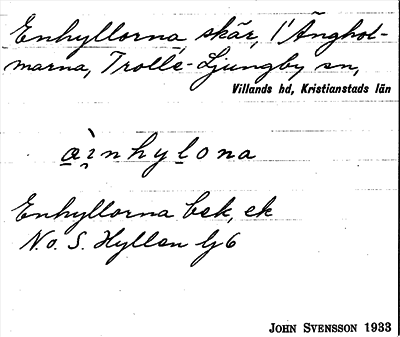 Enhyllorna, skär, i Änghol-
marna, Trolle-Ljungby sn,
Villands hd, Kristianstads län
a̠ìnhyl̠ona
Enhyllorna bek, ek
N.o. S. Hyllan lj 6
JOHN SVENSSON 1933